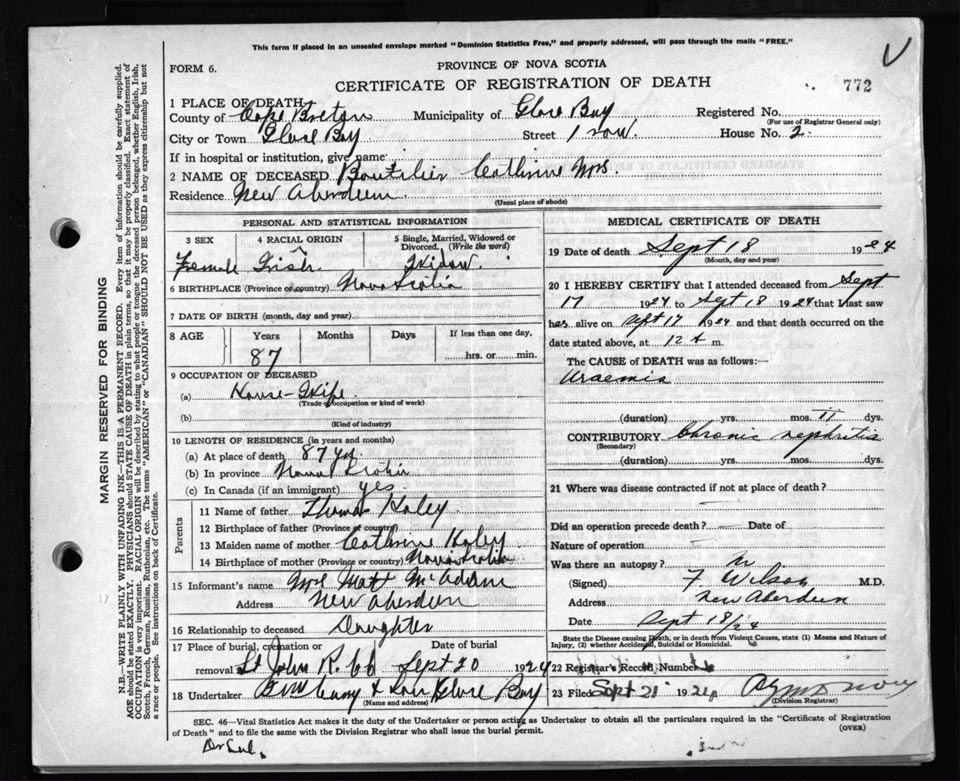 This form if placed in an unsealed envelope marked "Dominion Statistics Free," and properly addressed, will pass through the mails "FREE."
FORM 6.
PROVINCE OF NOVA SCOTIA
CERTIFICATE OF REGISTRATION OF DEATH
772
1 PLACE OF DEATH
County of Cape Breton Municipality of Glace Bay Registered No.
(For use of Registrar General only)
City or Town Glace Bay Street 1 row House No. 2
If in hospital or institution, give name:
2 NAME OF DECEASED Boutilier Cathrine Mrs.
Residence New Aberdeen
(Usual place of abode)
PERSONAL AND STATISTICAL INFORMATION
3 SEX 4 RACIAL ORIGIN 5 Single, Married, Widowed or Divorced. (Write the word)
Female Irish Widow.
6 BIRTHPLACE (Province or country) Nova Scotia
7 DATE OF BIRTH (month, day and year)
8 AGE Years Months Days If less than one day,
87 hrs. or min.
9 OCCUPATION OF DECEASED
(a) House-Wife
(Trade, occupation or kind of work)
(b)
(Kind of industry)
10 LENGTH OF RESIDENCE (in years and months)
(a) At place of death 87 yrs
(b) In province Nova Scotia
(c) In Canada (if an immigrant) yes
Parents
11 Name of father Thomas Haley
12 Birthplace of father (Province or country)
13 Maiden name of mother Cathrine Haley
14 Birthplace of mother (Province or country) Nova Scotia
15 Informant's name Mrs Matt McAdam
Address New Aberdeen
16 Relationship to deceased Daughter
17 Place of burial, cremation or removal Date of burial
St John R. Sept 20 1924
18 Undertaker Glace Bay
(Name and address)
MEDICAL CERTIFICATE OF DEATH
19 Date of death Sept 18 1924
(Month, day and year)
20 I HEREBY CERTIFY that I attended deceased from Sept
17 1924 to Sept 18 1924 that I last saw
has alive on Sept 17 1924 and that death occurred on the
date stated above, at 12 m.
The CAUSE of DEATH was as follows:
Uraemia
(duration) yrs. mos. 11 dys.
CONTRIBUTORY Chronic nephritis
(Secondary)
(duration) yrs. mos. dys.
21 Where was disease contracted if not at place of death?
Did an operation precede death? Date of
Nature of operation
Was there an autopsy?
(Signed) F Wilson M.D.
Address New Aberdeen
Date Sept 18/24
State the Disease causing Death, or in death from Violent Causes, state (1) Means and Nature of Injury, (2) whether Accidental, Suicidal or Homicidal.
22 Registrar's Record Number
23 Filed Sept 21 1924
(Division Registrar)
SEC. 46—Vital Statistics Act makes it the duty of the Undertaker or person acting as Undertaker to obtain all the particulars required in the "Certificate of Registration
of Death" and to file the same with the Division Registrar who shall issue the burial permit.
(OVER)
MARGIN RESERVED FOR BINDING
N.B.—WRITE PLAINLY WITH UNFADING INK—THIS IS A PERMANENT RECORD. Every item of information should be carefully supplied.
AGE should be stated EXACTLY. PHYSICIANS should STATE CAUSE OF DEATH in plain terms, so that it may be properly classified. Exact statement of
OCCUPATION is very important. RACIAL ORIGIN will be described by stating to what people or tongue the deceased person belonged, whether English, Irish,
Scotch, French, German, Russian, Ruthenian, etc. The terms "AMERICAN" or "CANADIAN" SHOULD NOT BE USED as they express citizenship but not
a race or people. See instructions on back of Certificate.